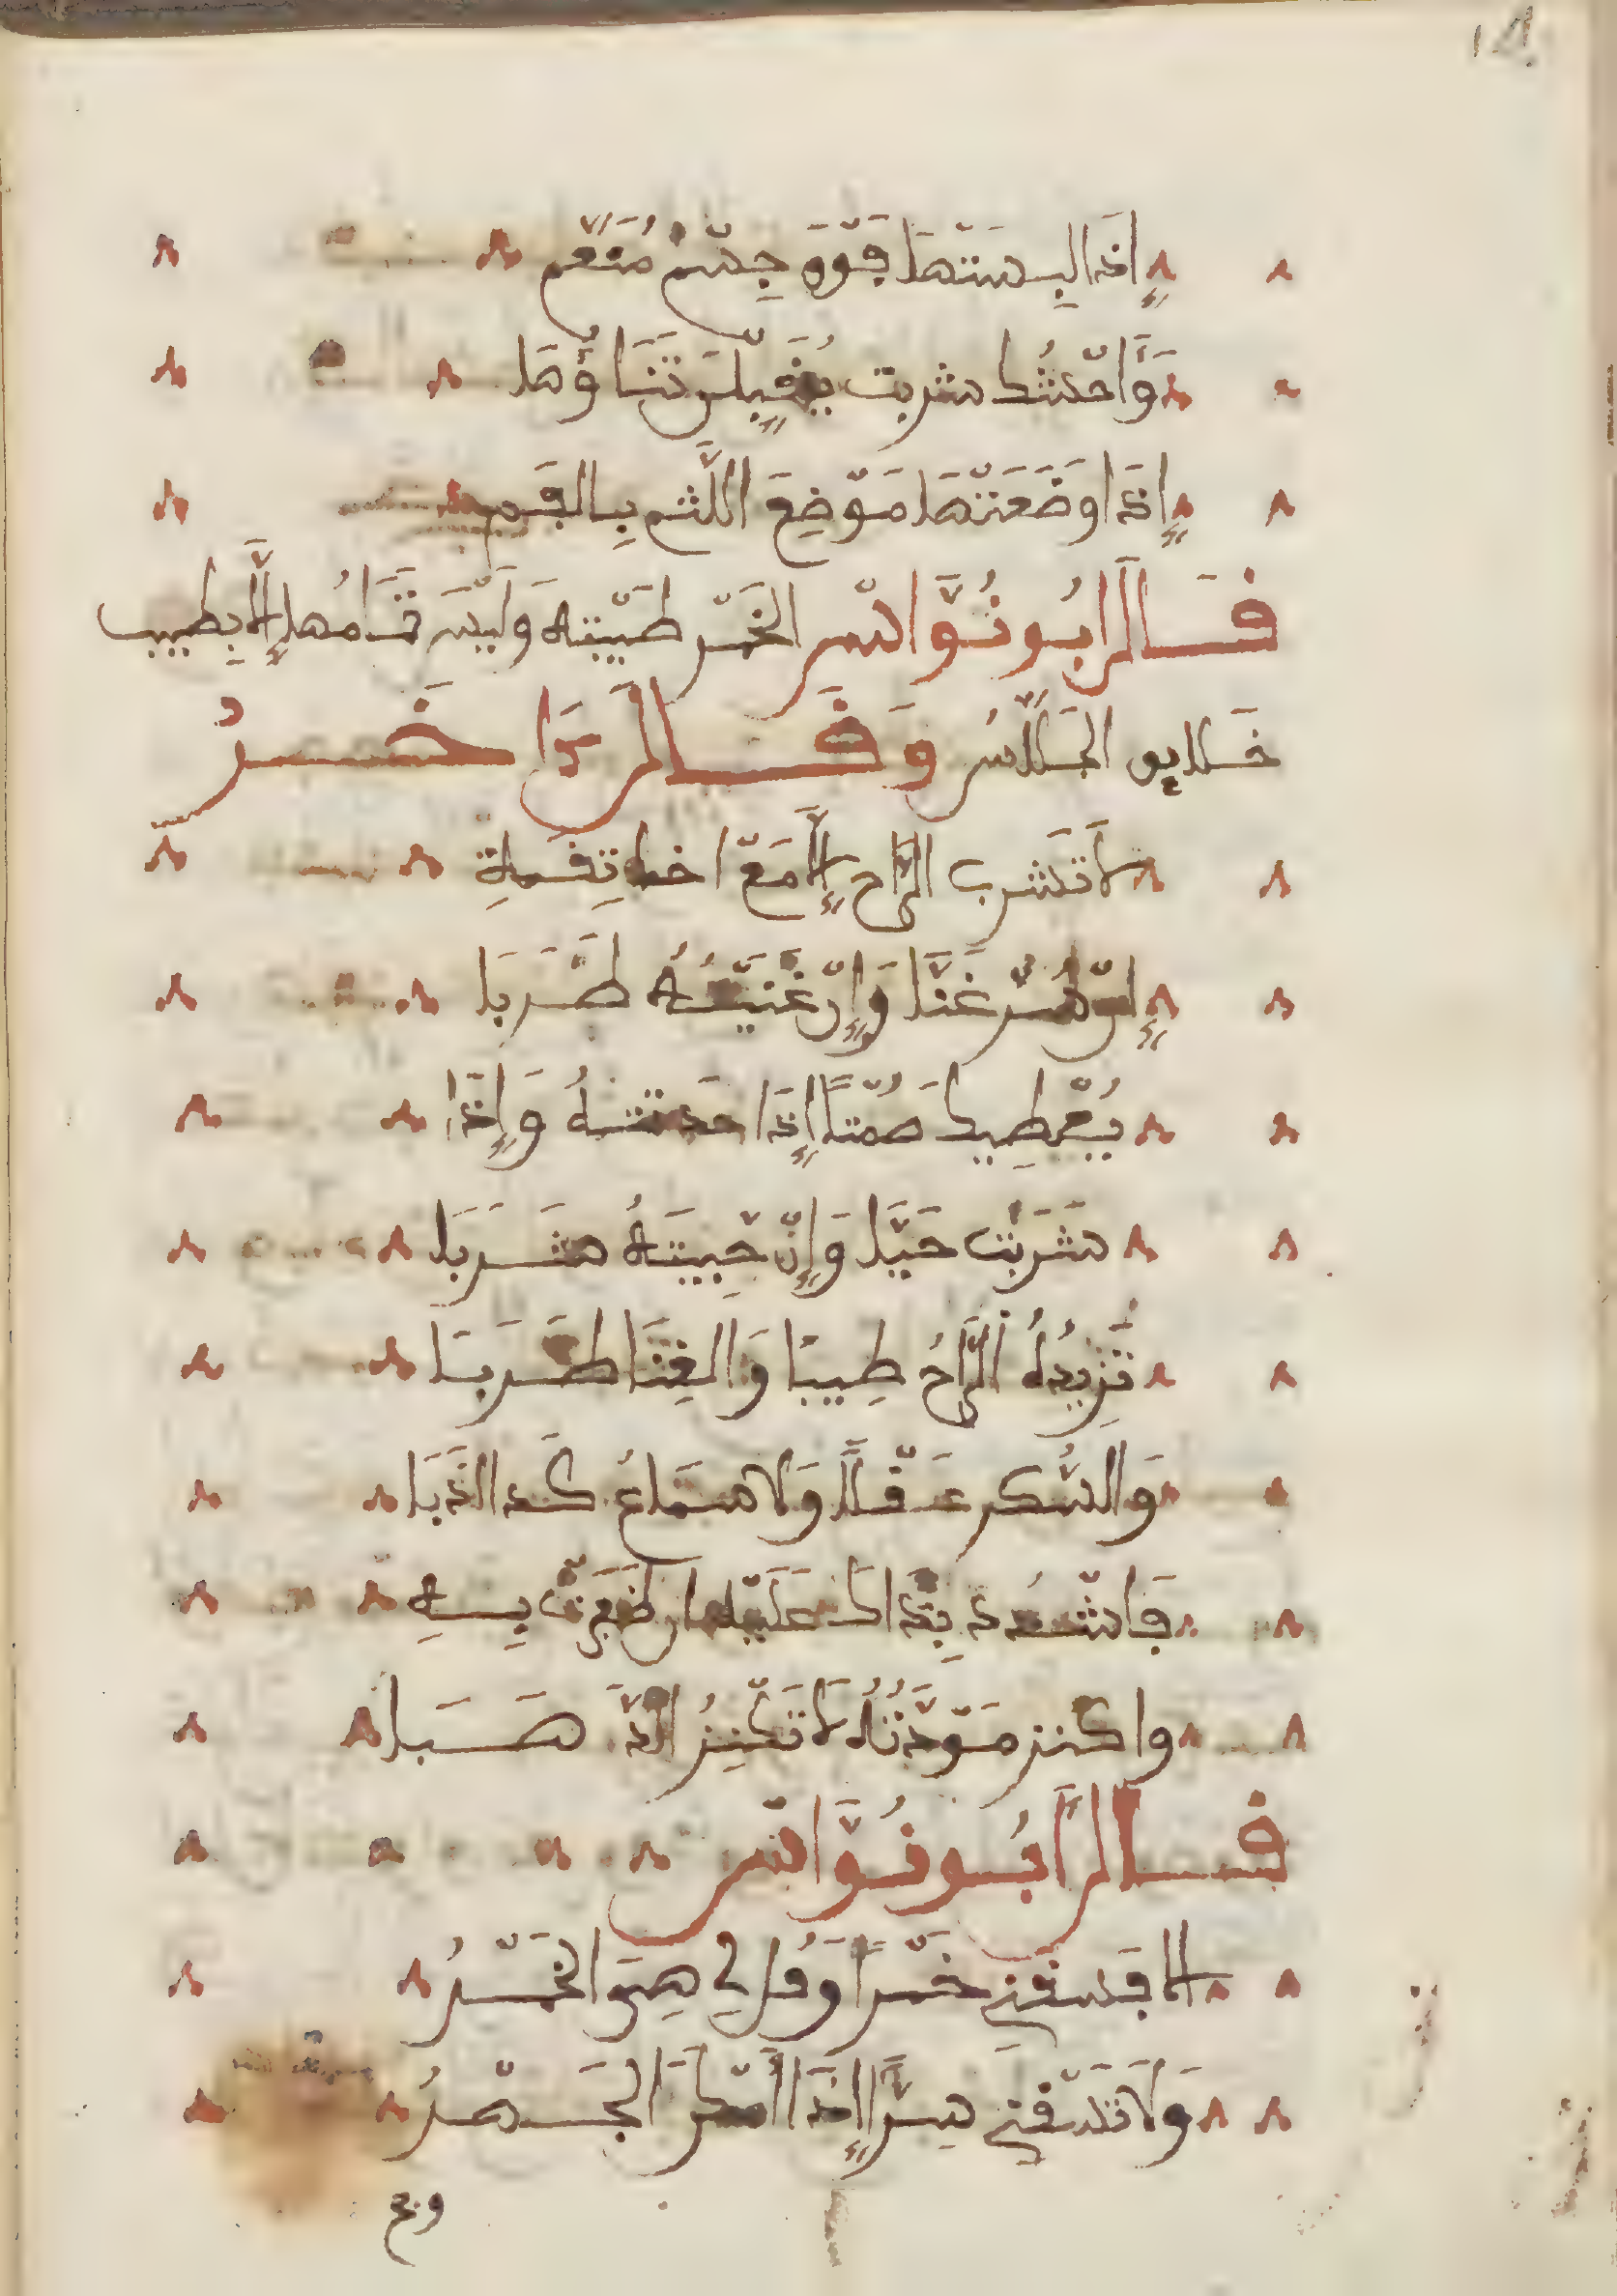 إذا البستها فوق جسم منعم
وأحسد شربت يقبلن ثناؤها
إذا وضعتها موضع اللثم بالفم
قال أبو نواس الخمر طيبة وليس تمامها إلا بطيب
خلايق الجلاس وقال آخر
لا تشرب الراح إلا مع أخا ثقة
إن سر غنا وإن غنيته طربا
يعطيك صمتا إذا حدثته وإذا
شربت حيا وإن حييته شربا
تزيده الراح طيبا والغنا طربا
والسكر عقلا ولا سماع كد الذبا
فاشدد يداك عليه إن ظفرت به
واكنز مودته لا تكنز الذهبا
قال أبو نواس
ألا فاسقني خمرا وقل لي هي الخمر
ولا تسقني سرا إذا أمكن الجهر
وبح